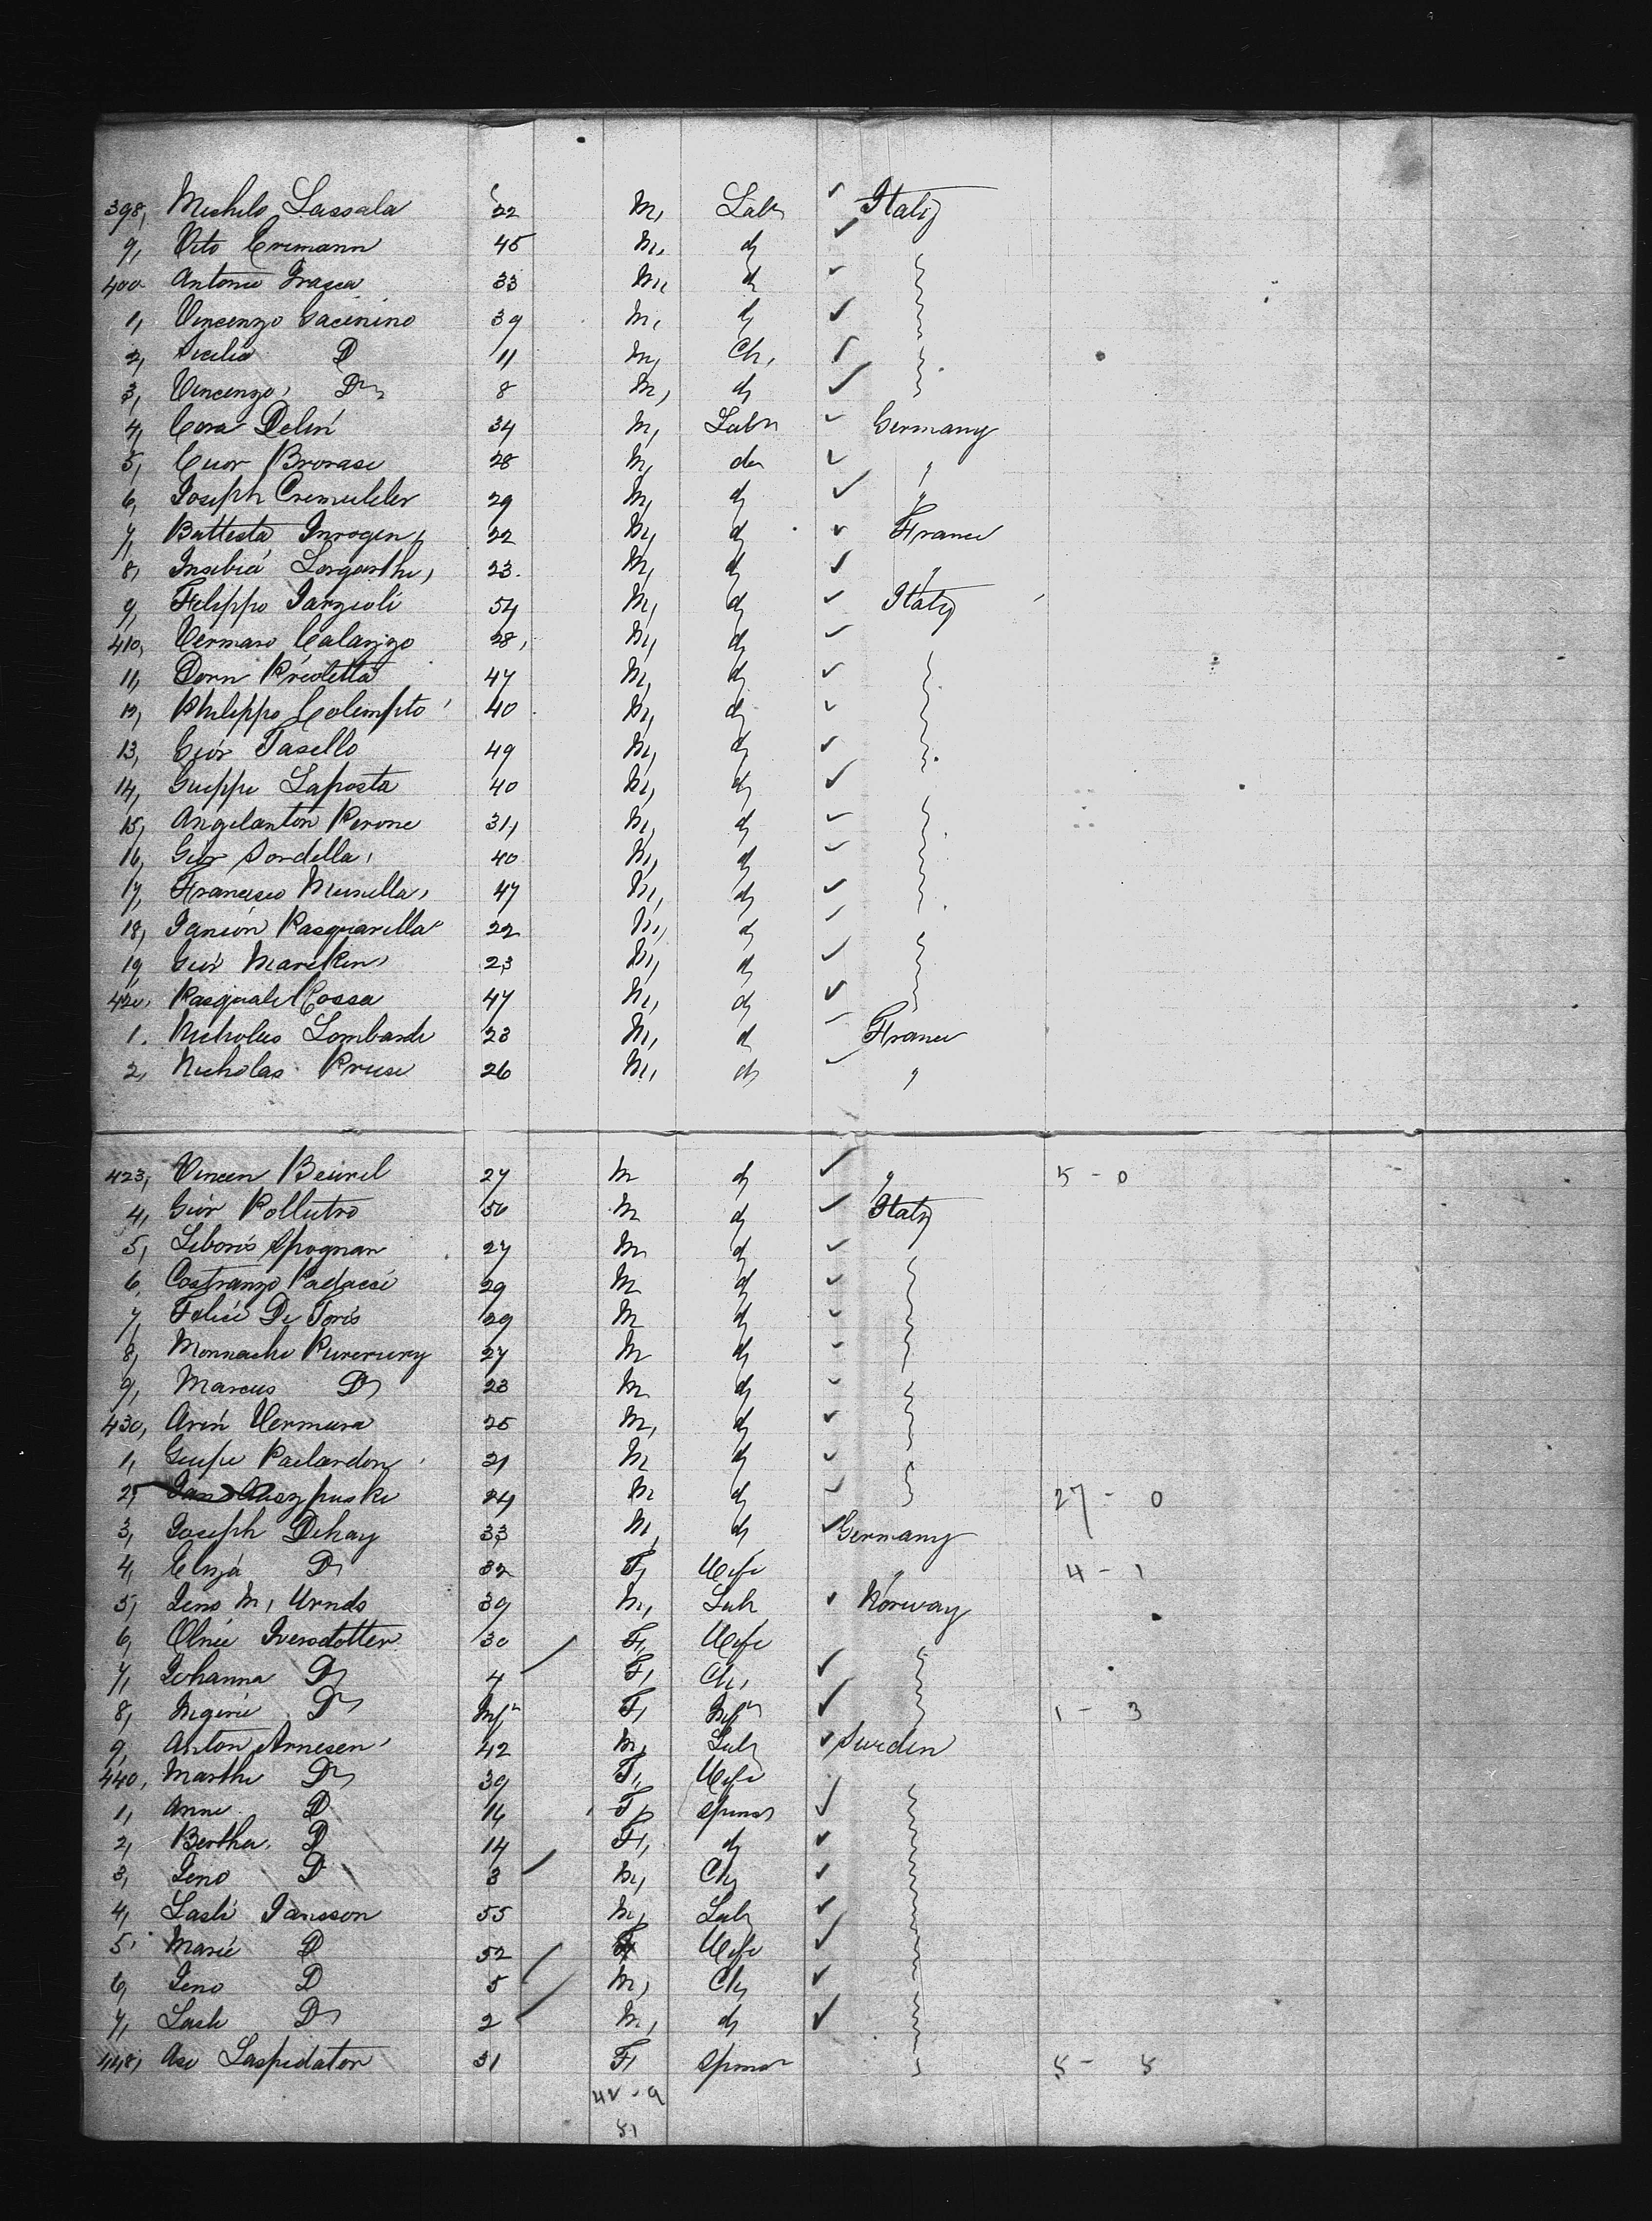 398, Michilo Lassala 22 M, Labr ✓ Italy
9, Vito Crimann 45 M, d ✓
400 Antonio Frasca 33 M, d ✓
1, Vincenzo Gacinino 39 M, d ✓
2, Sicilia D 11 M, Ch, ✓
3, Vincenzo, Do 8 M, d ✓
4, Cora Delin 34 M, Labr ✓ Germany
5, Cuor Brorase 28 M, do ✓ "
6, Joseph Cremuliler 29 M, d ✓ "
7, Battesta Inrogen, 22 M, d ✓ France
8, Insibia Lorgarthi, 23. M, d ✓ "
9, Felippo Tarzioli 54 M, d ✓ Italy
410, Vermaro Calanzgo 28, M, d ✓
11, Dorn Prioletta 47 M, d ✓
12, Philippo Colimpto 40 M, d ✓
13, Giór Tasello 49 M, d ✓
14, Gueppe Laposta 40 M, d ✓
15, Angelanton Perone 31, M, d ✓
16, Giór Sordella, 40 M, d ✓
17, Francisco Munella, 47 M, d ✓
18, Janión Pasquarella 22 M, d ✓
19, Giór Marekin, 23 M, d ✓
420, Pasquale Cossa 47 M, d ✓
1. Nicholas Lombardi 23 M, d ✓ France
2, Nicholas Pruse 26 M, do ✓ "
423, Vincen Beurel 27 M d ✓ " 5 - 0
4, Giór Pollutro 50 M d ✓ Italy
5, Liboris Spognan 27 M d ✓
6, Costranzo Padacsi 29 M d ✓
7, Felici De Joris 29 M d ✓
8, Monnacho Pureriery 27 M d ✓
9, Marcus Do 23 M d ✓
430, Arin Vermura 25 M, d ✓
1, Guipe Pailardon 21 M d ✓
2, 24 M d ✓ 27 - 0
3, Joseph Dehay 33 M, d ✓ Germany
4, Eliza Do 32 F, Wife " 4 - 1
5, Jens M, Urnds 39 M, Lab ✓ Norway
6, Olnie Iversdotter 30 F, Wife
7, Johanna Do 4 F, Ch, ✓
8, Ingirie Do Inft F, Inft ✓ 1 - 3
9, Anton Arnesen 42 M, Lab ✓ Sweden
440, Marthe Do 39 F, Wife
1, Anne D 16 F, Spinsr ✓
2, Bertha, D 14 F, d ✓
3, Jens D 3 M, Ch ✓
4, Lash Jansson 55 M, Lab ✓
5, Marie D 52 F Wife ✓
6, Jens D 5 M, Ch ✓
7, Lash Do 2 M, d ✓
448, Ase Laspidator 31 F, Spinsr 5 - 5
42 - 9
51